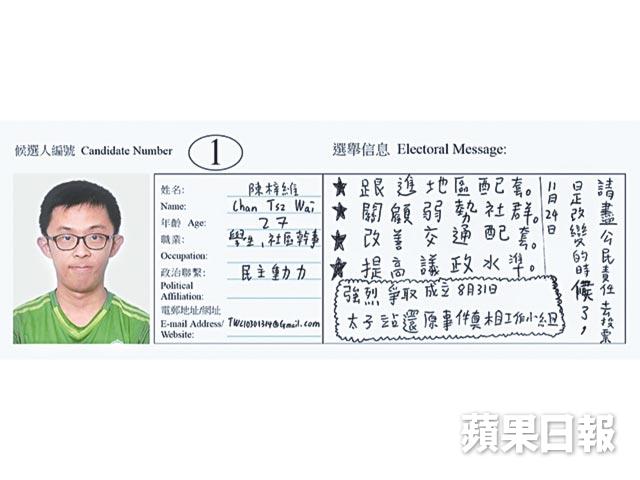 候選人編號 Candidate Number 1
選舉信息 Electoral Message:
姓名: 陳梓維
Name: Chan Tsz Wai
年齡 Age: 27
職業: 學生,社區幹事
Occupation:
政治聯繫: 民主動力
Political
Affiliation:
電郵地址/網址
E-mail Address/ TWC10301314@Gmail.com
Website:
★ 跟進地區配套。
★ 關顧弱勢社群。
★ 改善交通配套。
★ 提高議政水準。
強烈爭取成立8月31日
太子站還原事件真相工作小組
請盡公民責任去投票
是改變的時候了,
11月24日
蘋果日報